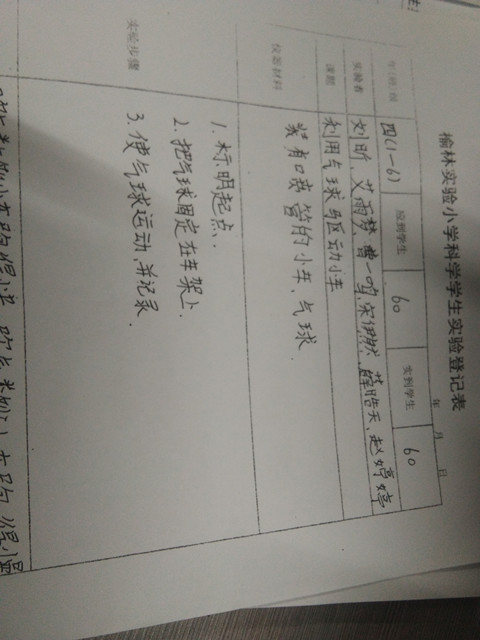 榆林实验小学科学学生实验登记表
年 月 日
四(1-6) 应到学生 60 实到学生 60
实验者 刘昕、艾雨梦、曹一鸣、宋伊然、薛皓天、赵婷婷
课题 利用气球驱动小车
仪器材料 装有吸管的小车、气球.
实验步骤
1. 标明起点.
2. 把气球固定在车架上.
3. 使气球运动,并记录.